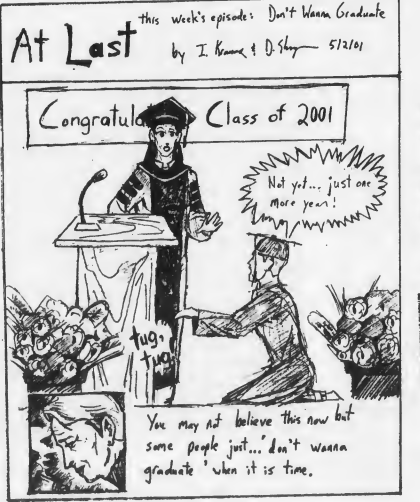 this week's episode: Don't Wanna Graduate
At Last
by I. & D. 5/2/01
Congratula Class of 2001
Not yet... just one
more year!
tug,
tug
You may not believe this now but
some people just... 'don't wanna
graduate' when it is time.